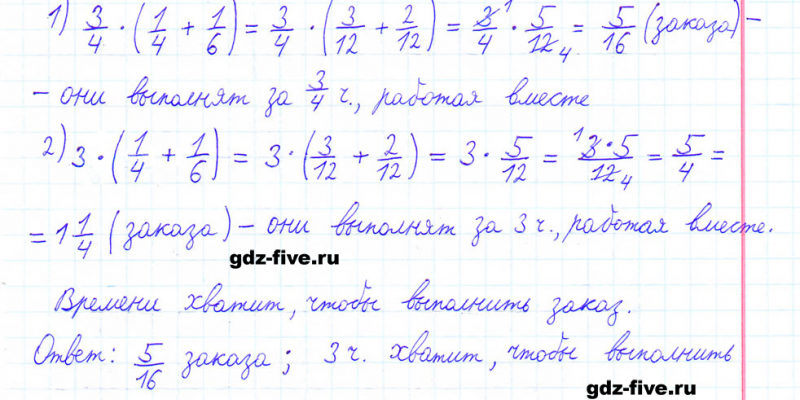 1) 3/4 · (1/4 + 1/6) = 3/4 · (3/12 + 2/12) = 3̶¹/4 · 5/1̶2̶₄ = 5/16 (заказа) –
– они выполнят за 3/4 ч., работая вместе
2) 3 · (1/4 + 1/6) = 3 · (3/12 + 2/12) = 3 · 5/12 = ¹3̶·5/1̶2̶₄ = 5/4 =
= 1 1/4 (заказа) – они выполнят за 3 ч., работая вместе.
gdz-five.ru
Времени хватит, чтобы выполнить заказ.
Ответ: 5/16 заказа; 3 ч. хватит, чтобы выполнить
gdz-five.ru